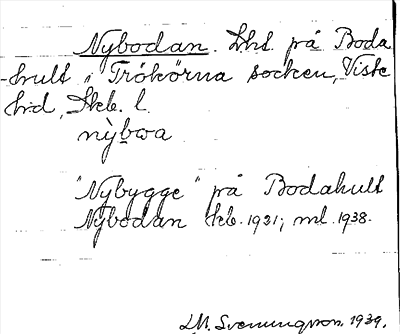 Nybodan. Lht. på Boda
-hult i Trökörna socken, Viste
hd, Skb. l.
nỳb̲wa
"Nybygge" på Bodahult
Nybodan Skb. 1921; ml. 1938.
L.M. Svenungsson. 1939.